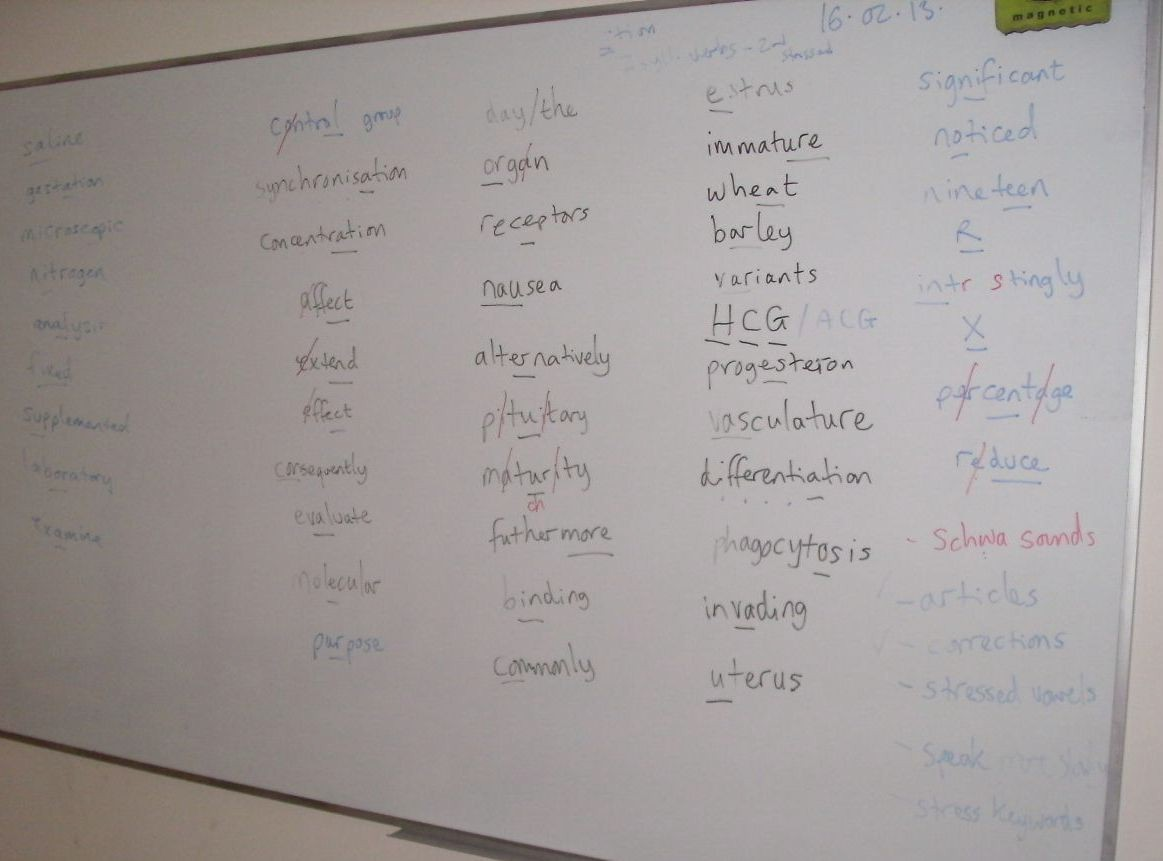 magnetic
16.02.13.
-tion
verbs - 2nd stressed
saline
gestation
microscopic
nitrogen
analysis
fixed
supplemented
laboratory
examine
control group
synchronisation
concentration
affect
extend
effect
consequently
evaluate
molecular
purpose
day/the
organ
receptors
nausea
alternatively
pituitary
maturity
ch
futhermore
binding
commonly
estrus
immature
wheat
barley
variants
HCG/ACG
progesteron
vasculature
differentiation
phagocytosis
invading
uterus
significant
noticed
nineteen
R
intr stingly
X
percentage
reduce
- Schwa sounds
- articles
- corrections
- stressed vowels
- speak more slowly
- stress keywords